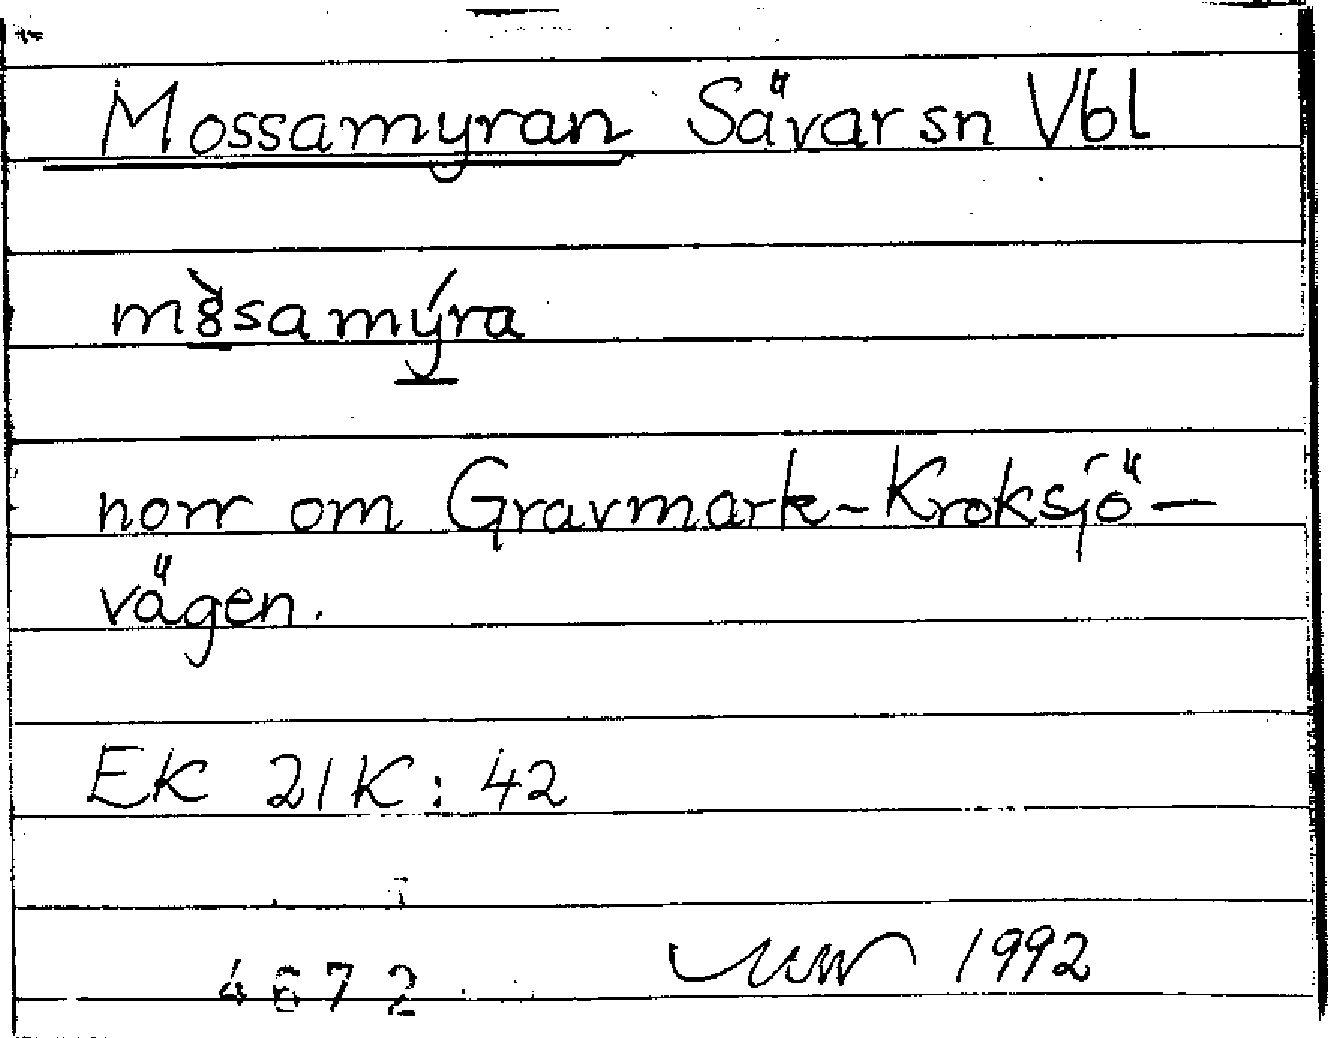 Mossamyran Sävar sn Vbl
m8̀samýra
norr om Gravmark-Kroksjö-
vägen.
EK 21K: 42
1992
4672